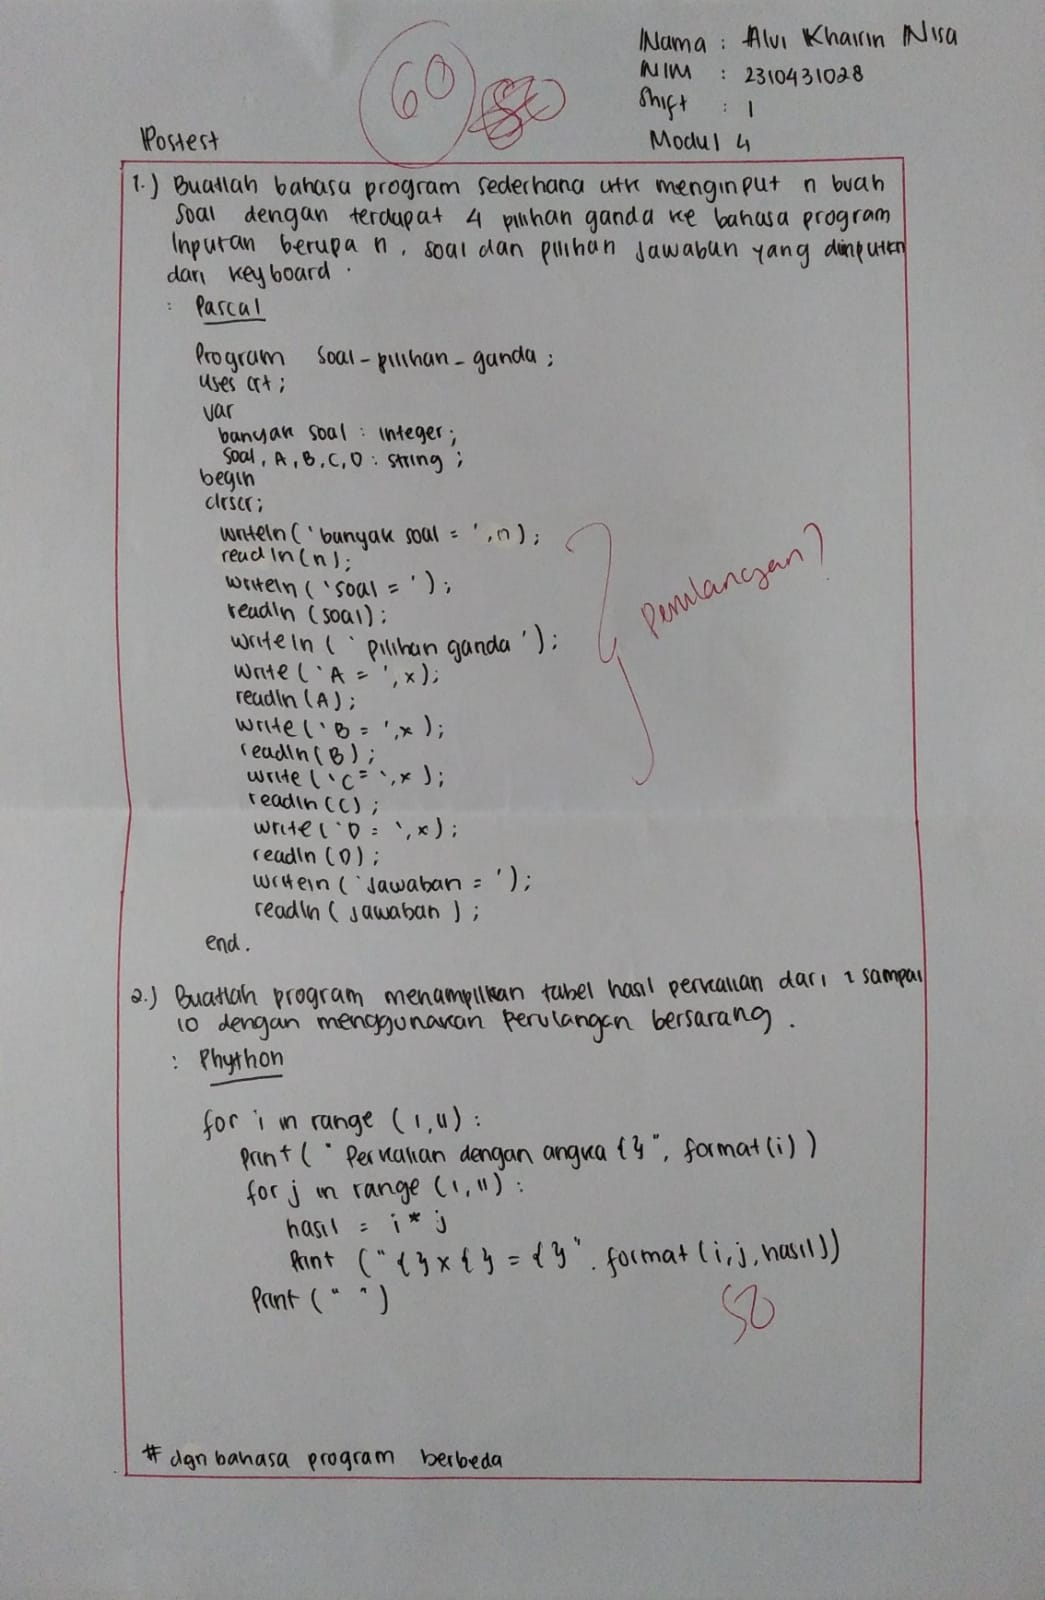 60
Nama : Alvi Khairin Nisa
NIM : 2310431028
Shift : 1
Modul 4
Postest
1.) Buatlah bahasa program sederhana utk menginput n buah
Soal dengan terdapat 4 pilihan ganda ke bahasa program
Inputan berupa n, soal dan pilihan Jawaban yang diinputkn
dari keyboard.
: Pascal
Program Soal-pilihan-ganda;
uses crt;
var
banyak soal : integer;
Soal, A, B, C, D : string;
begin
clrscr;
writeln('banyak soal = ', n);
readln(n);
writeln('soal = ');
readln (soal);
writeln (' pilihan ganda ');
write ('A = ', x);
readln (A);
write ('B = ', x);
readln (B);
write ('C = ', x);
readln (C);
write ('D = ', x);
readln (D);
writeln ('Jawaban = ');
readln (Jawaban);
end.
Perulangan?
2.) Buatlah program menampilkan tabel hasil perkalian dari 1 sampai
10 dengan menggunakan Perulangan bersarang.
: Phython
for i in range (1,11) :
Print (" Perkalian dengan angka {}", format(i))
for j in range (1,11) :
hasil = i * j
Print ("{} x {} = {}". format (i, j, hasil))
Print (" ")
50
# dgn bahasa program berbeda